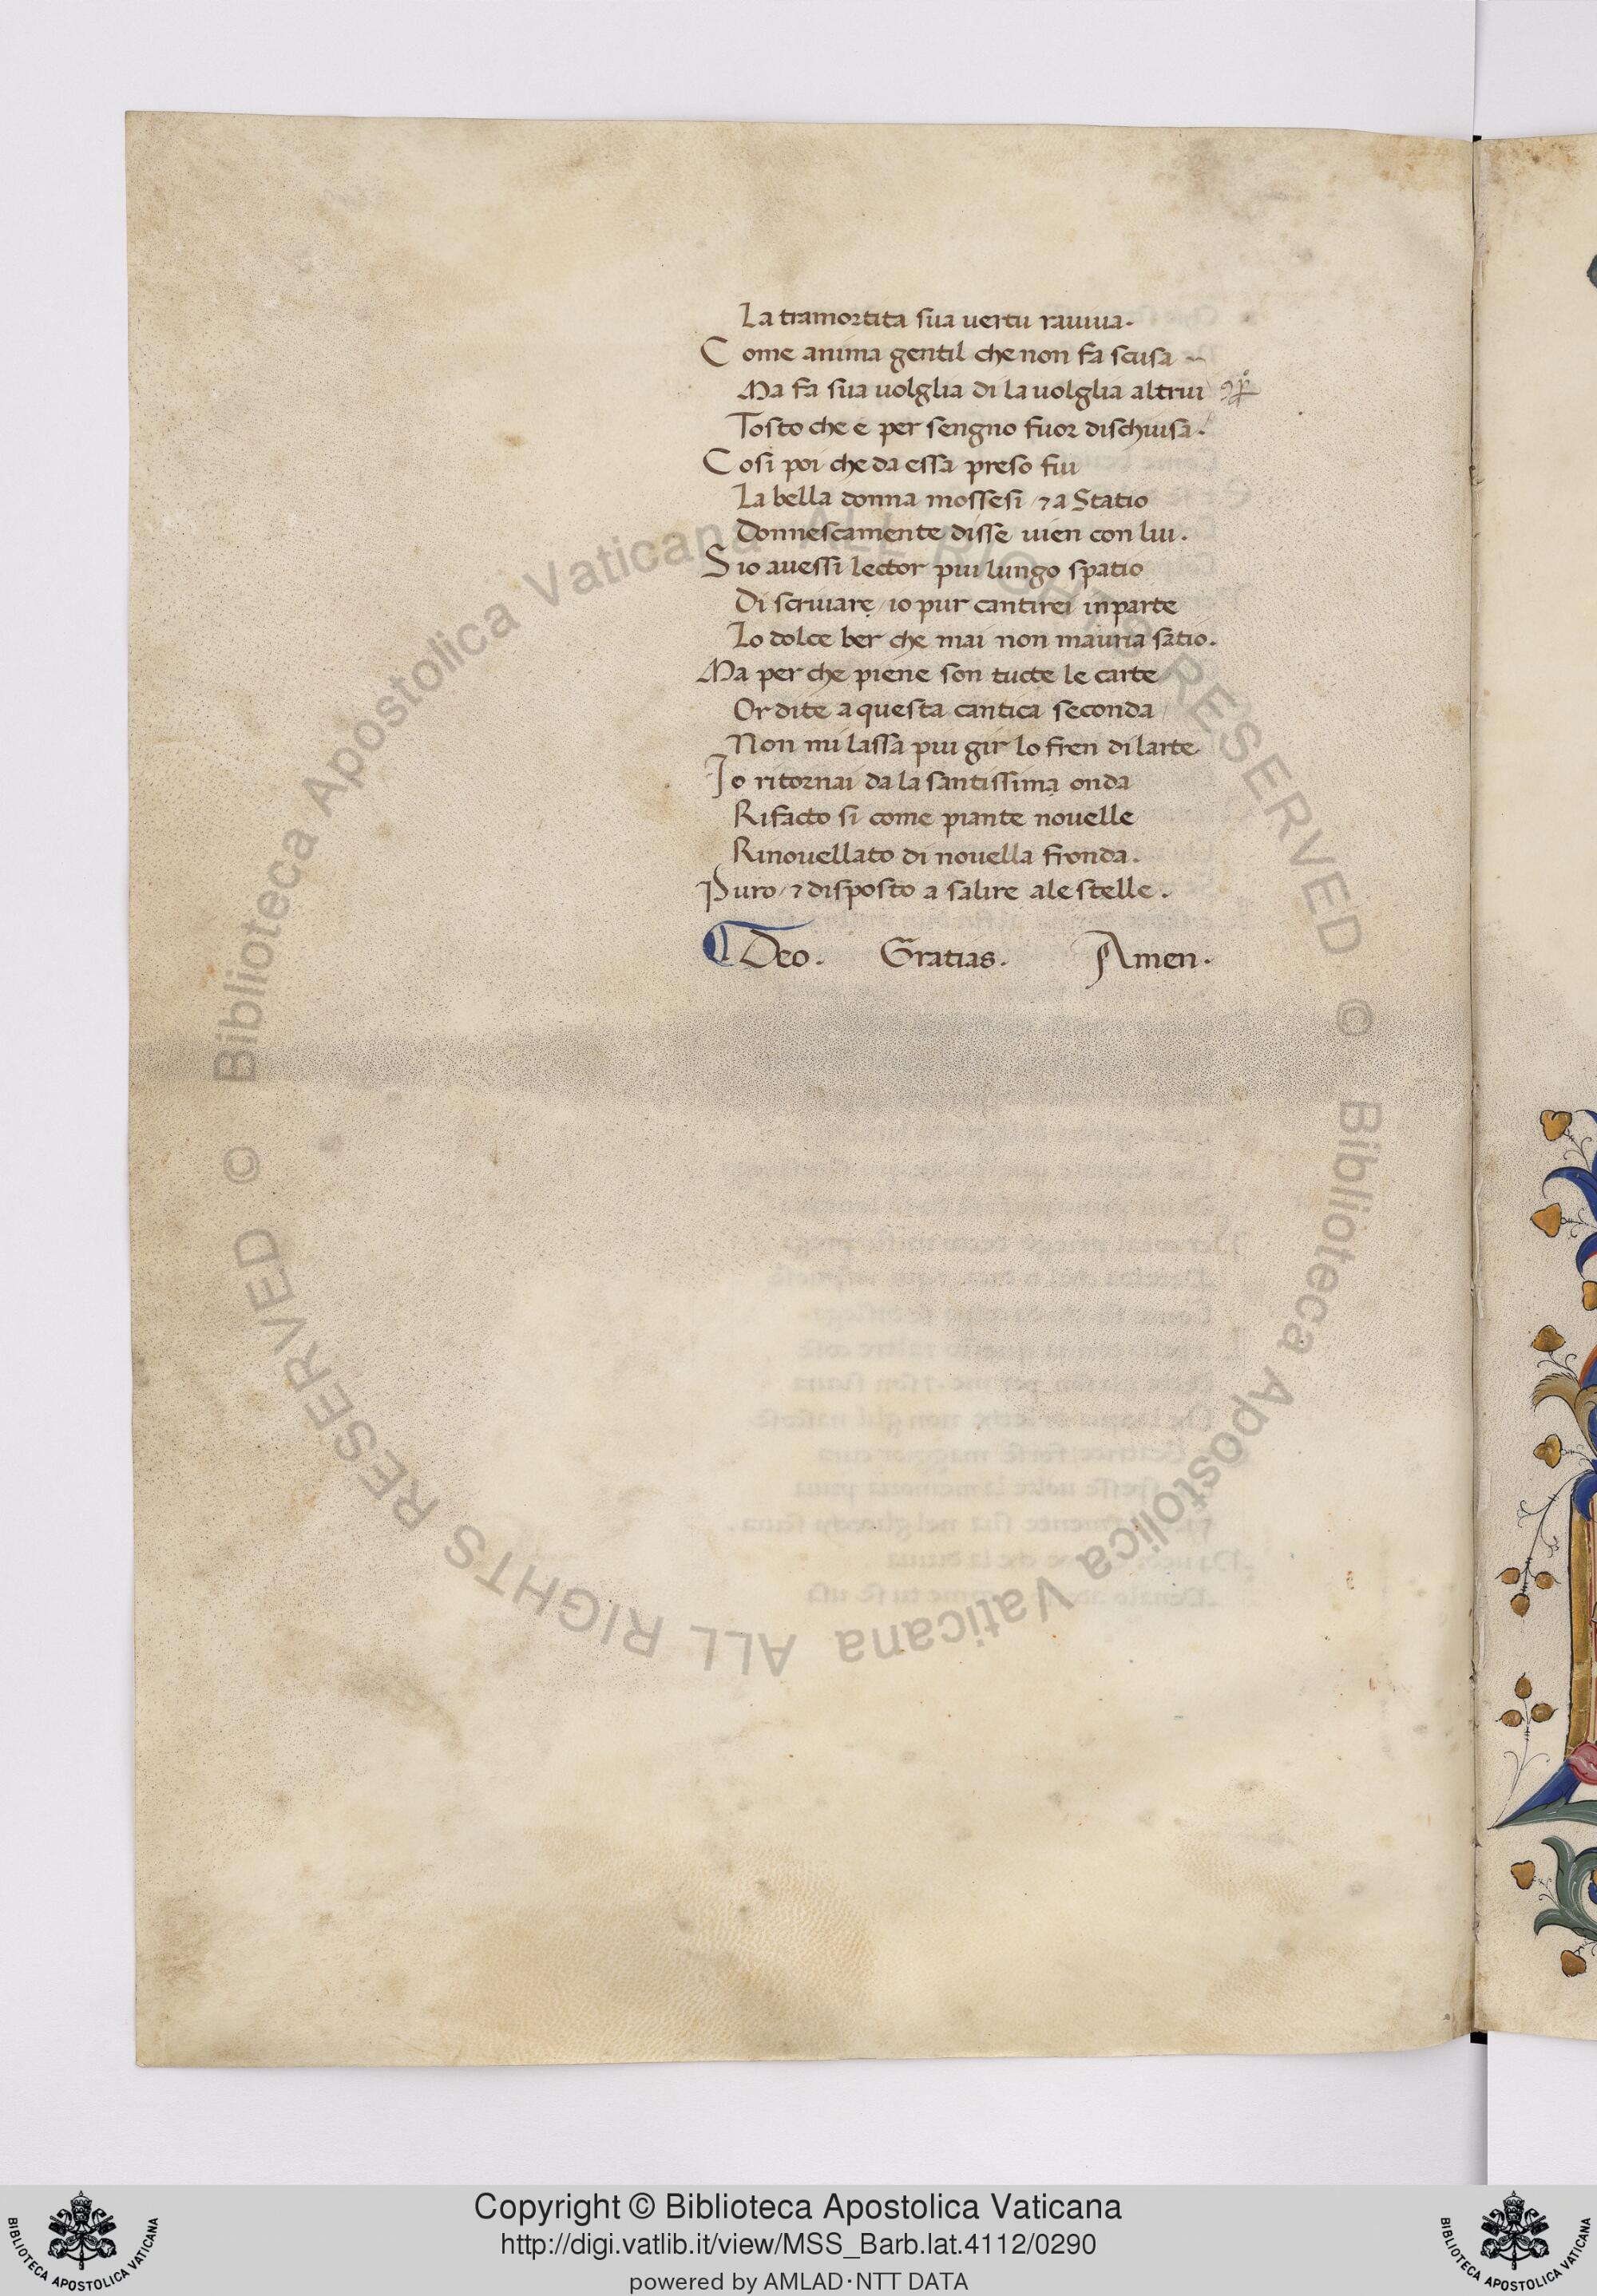 La tramortita sua uertu rauiua.
Come anima gentil che non fa scusa
Ma fa sua uolglia di la uolglia altrui
Tosto che e per sengno fuor dischiusa.
Cosi poi che da essa preso fui
La bella donna mossesi / ⁊ a Statio
Donnescamente disse uien con lui.
S io auessi lector piu lungo spatio
Di scriuare / io pur cantirei in parte
Lo dolce ber che mai non mauria satio.
Ma per che piene son tucte le carte
Ordite a questa cantica seconda
Non mi lassa piu gir lo fren di larte
Io ritornai da la santissima onda
Rifacto si come piante nouelle
Rinouellato di nouella fronda.
Puro / ⁊ disposto a salire ale stelle.
Deo. Gratias. Amen.
© Biblioteca Apostolica Vaticana ALL RIGHTS RESERVED
© Biblioteca Apostolica Vaticana ALL RIGHTS RESERVED
Copyright © Biblioteca Apostolica Vaticana
http://digi.vatlib.it/view/MSS_Barb.lat.4112/0290
powered by AMLAD·NTT DATA
BIBLIOTECA APOSTOLICA VATICANA
BIBLIOTECA APOSTOLICA VATICANA